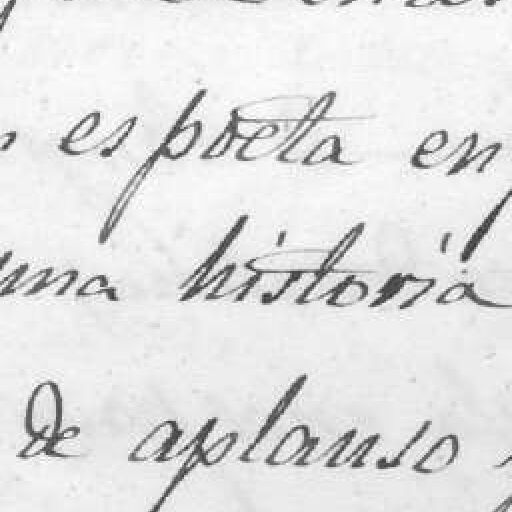 es poeta en
una historia
de aplauso